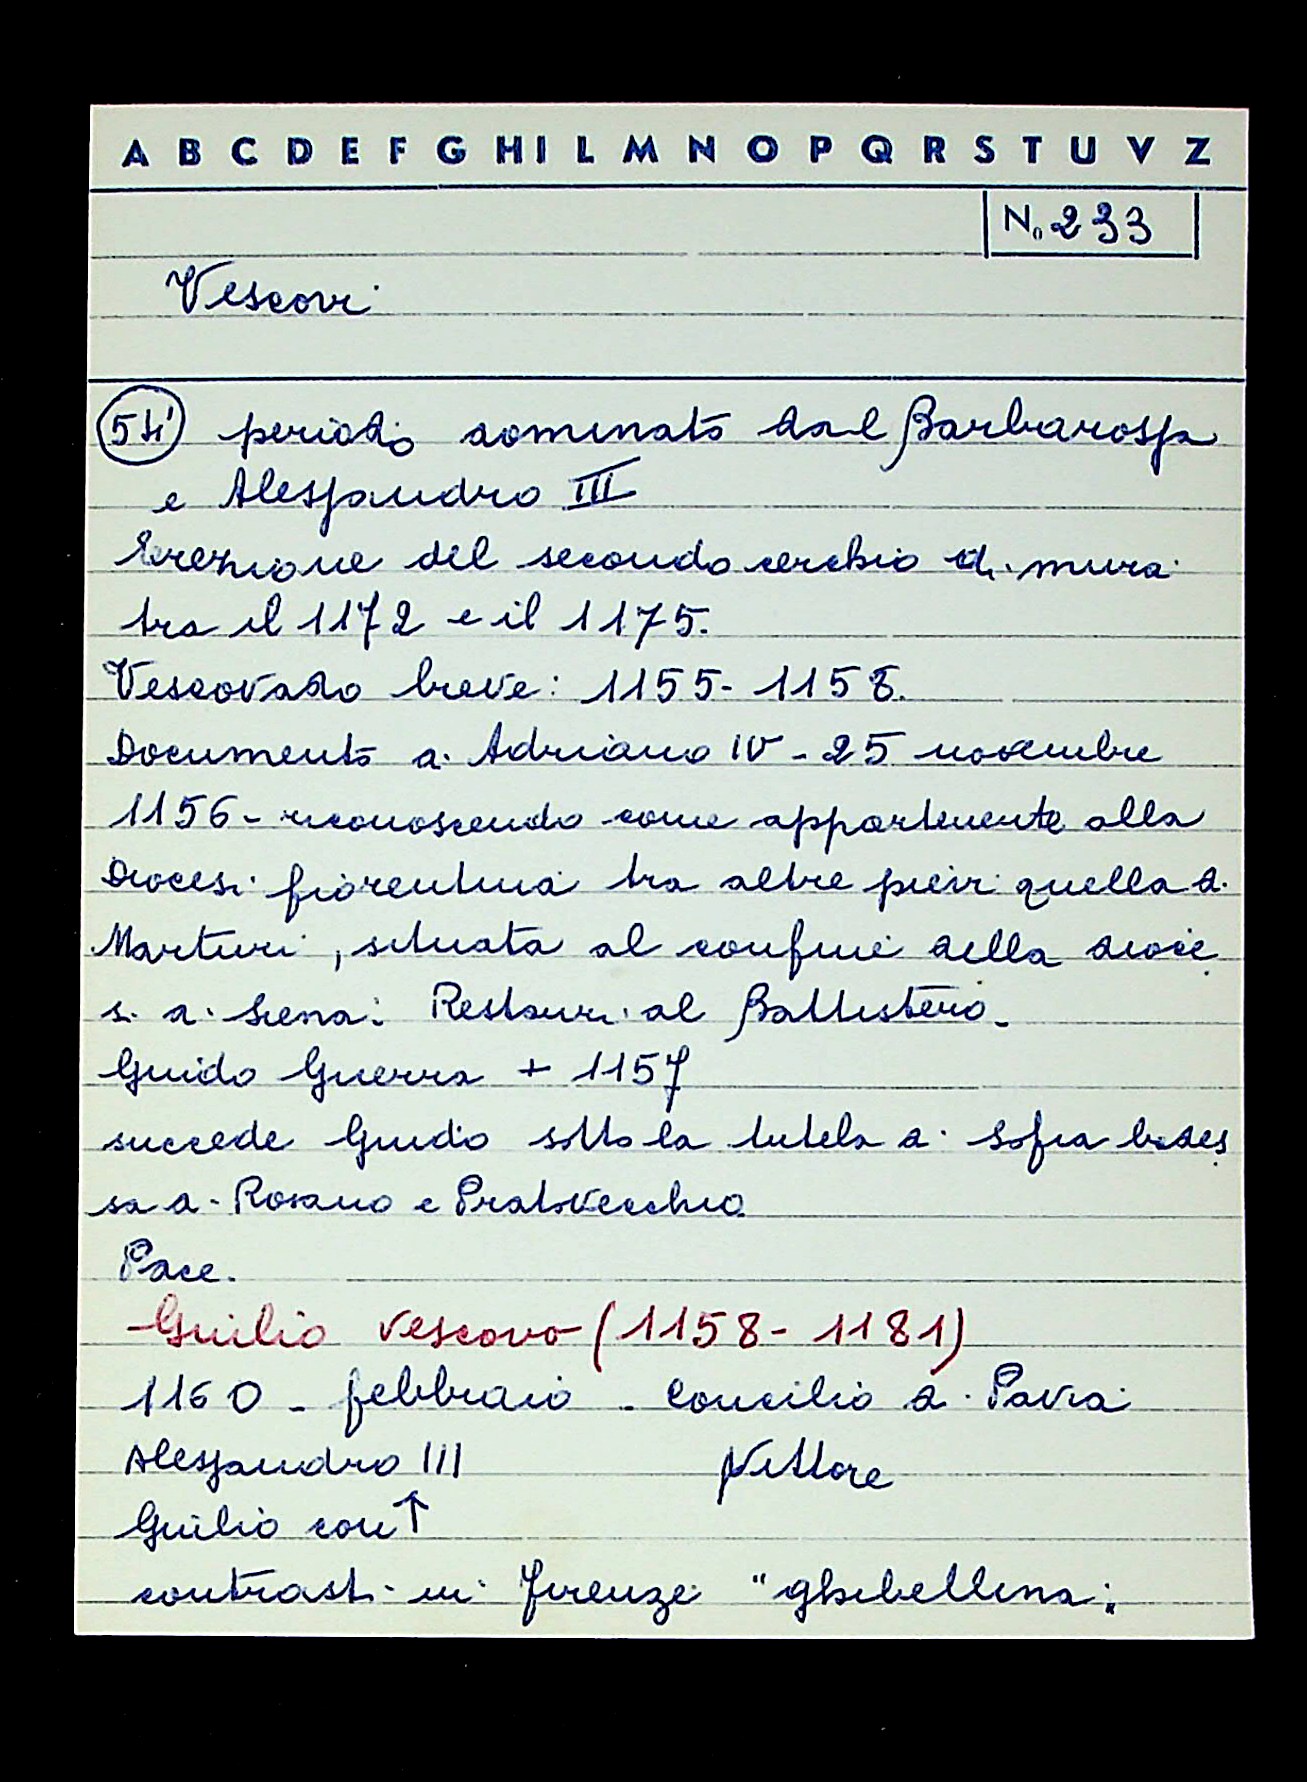 A B C D E F G H I L M N O P Q R S T U V Z
No 233
Vescovi
periodo dominato dal Barbarossa
e Alessandro III
Erezione del secondo cerchio di mura
tra il 1172 e il 1175.
Vescovado breve: 1155-1158.
Documento di Adriano IV - 25 novembre
1156 - riconoscendo come appartenente alla
diocesi fiorentina tra altre pievi quella di
Marturi, situata al confine della dioce
si di Siena. Restauri al Battistero.
Guido Guerra + 1157
succede Guido sotto la tutela di Sofia bades
sa di Rosano e Pratovecchio
Pace.
Giulio vescovo (1158-1181)
1160 - febbraio - concilio di Pavia
Alessandro III Vittore
Giulio con ↑
contrasti in Firenze "ghibellina: